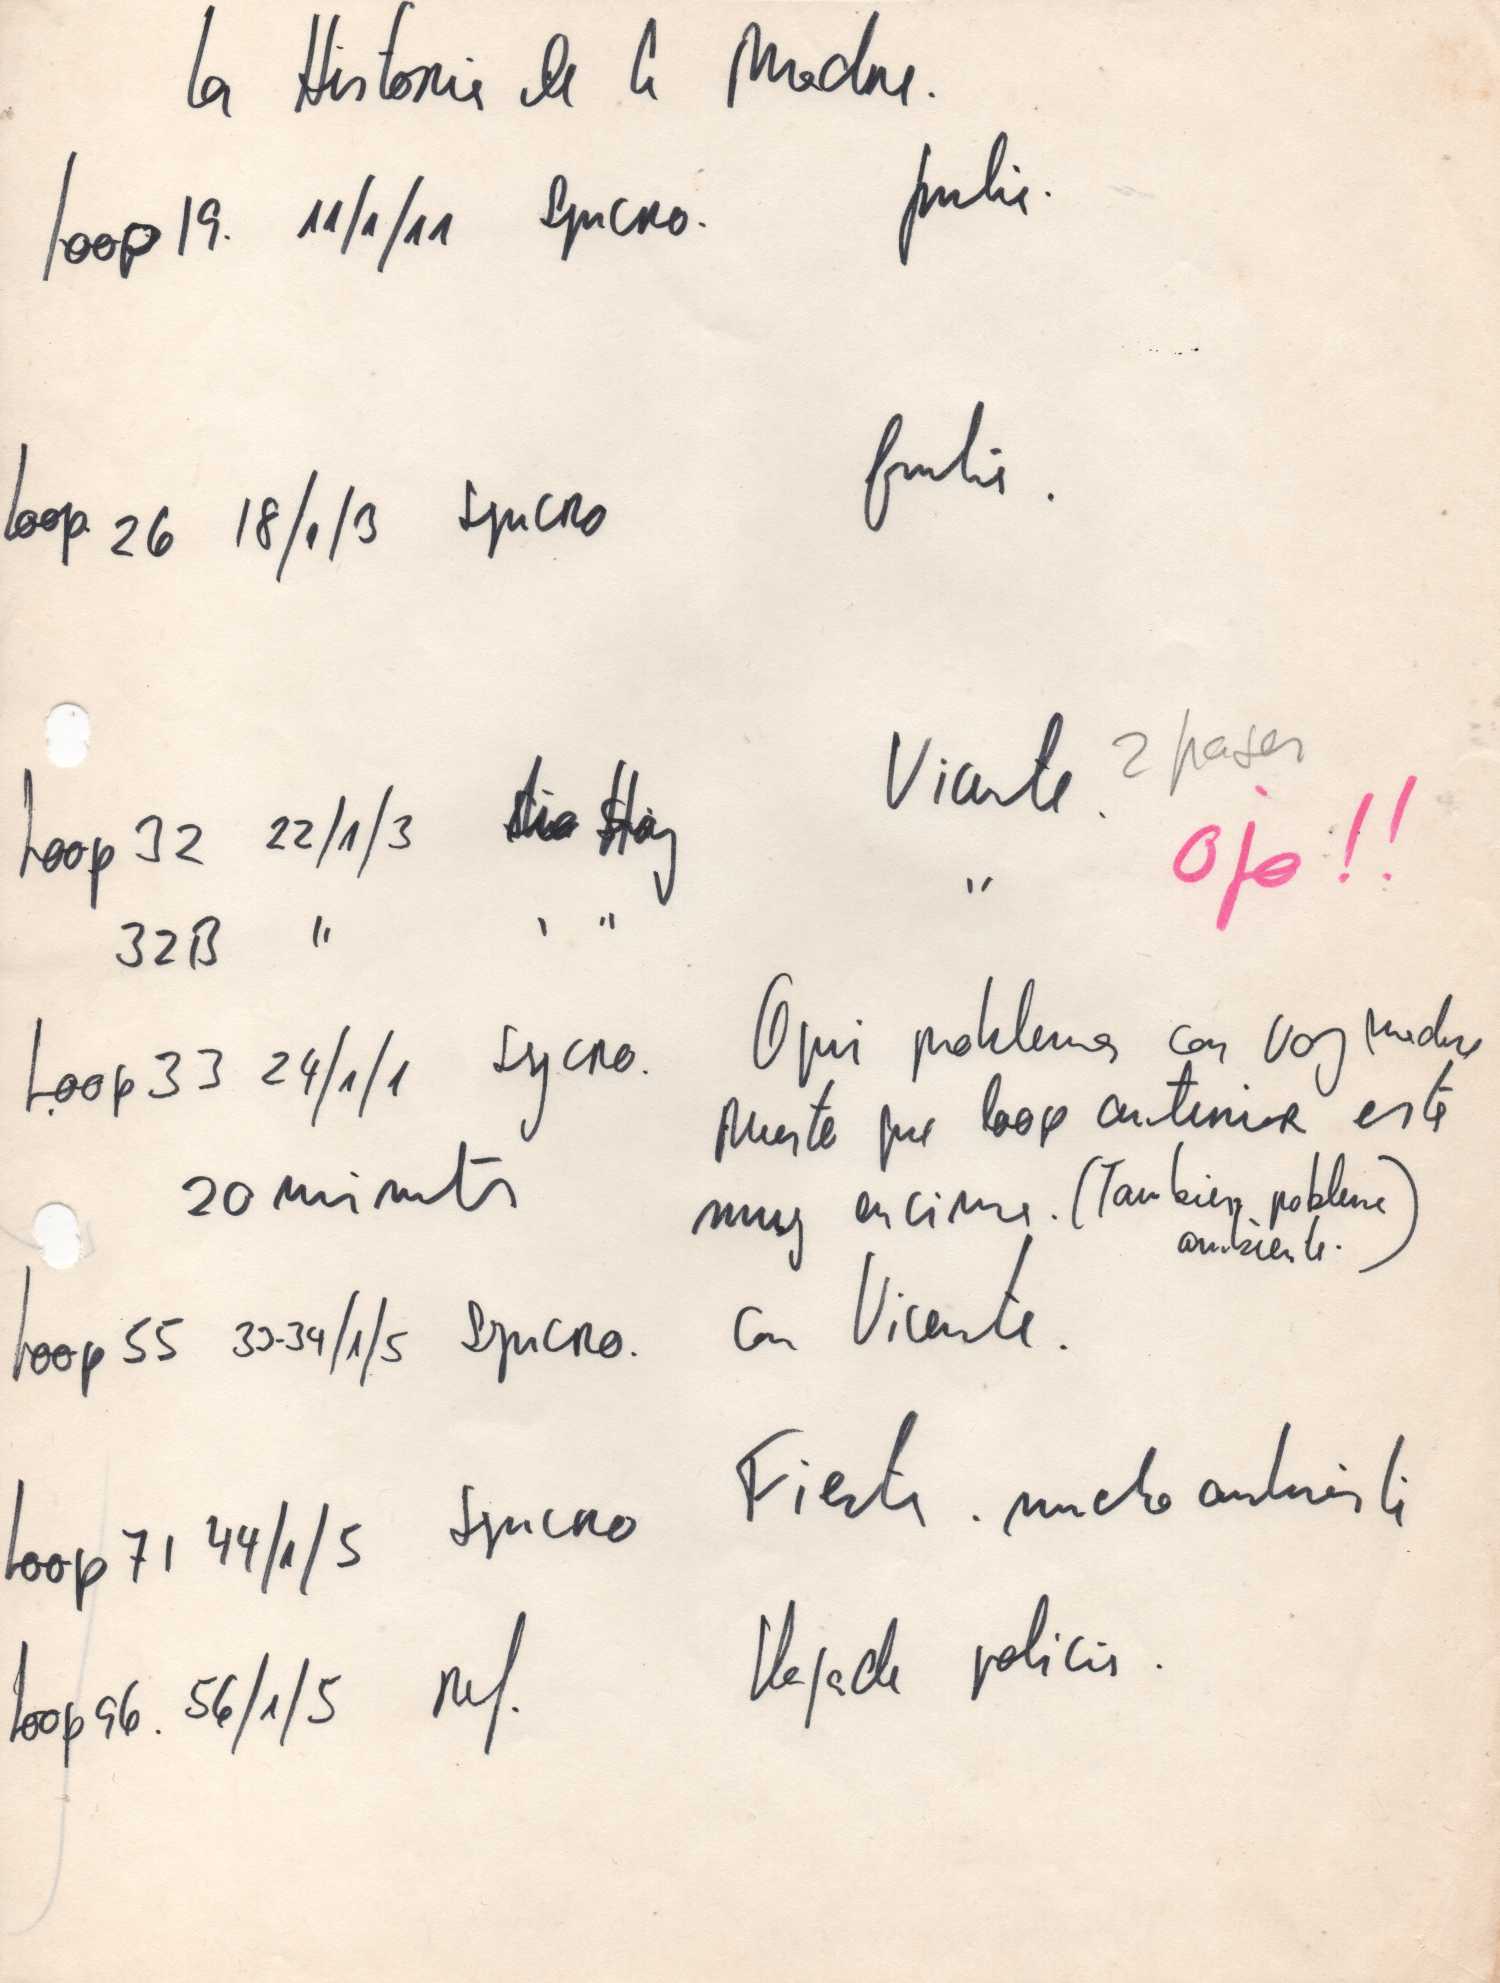 La Historia de la Madre.
Loop 19. 11/1/11 Syncro. Julia.
Loop 26 18/1/3 Syncro Julia.
Loop 32 22/1/3 Vicente. 2 pases
Ojo!!
32B " ' " "
Loop 33 24/1/1 Sycro. Aqui problemas con voz madre
20 minuts puesto que loop anterior está
muy encima. (Tambien problema
ambiente.)
Loop 55 33-34/1/5 Syncro. con Vicente.
Loop 71 44/1/5 Syncro Fiesta. mucho ambiente
Loop 96. 56/1/5 Ref. llegada policia.